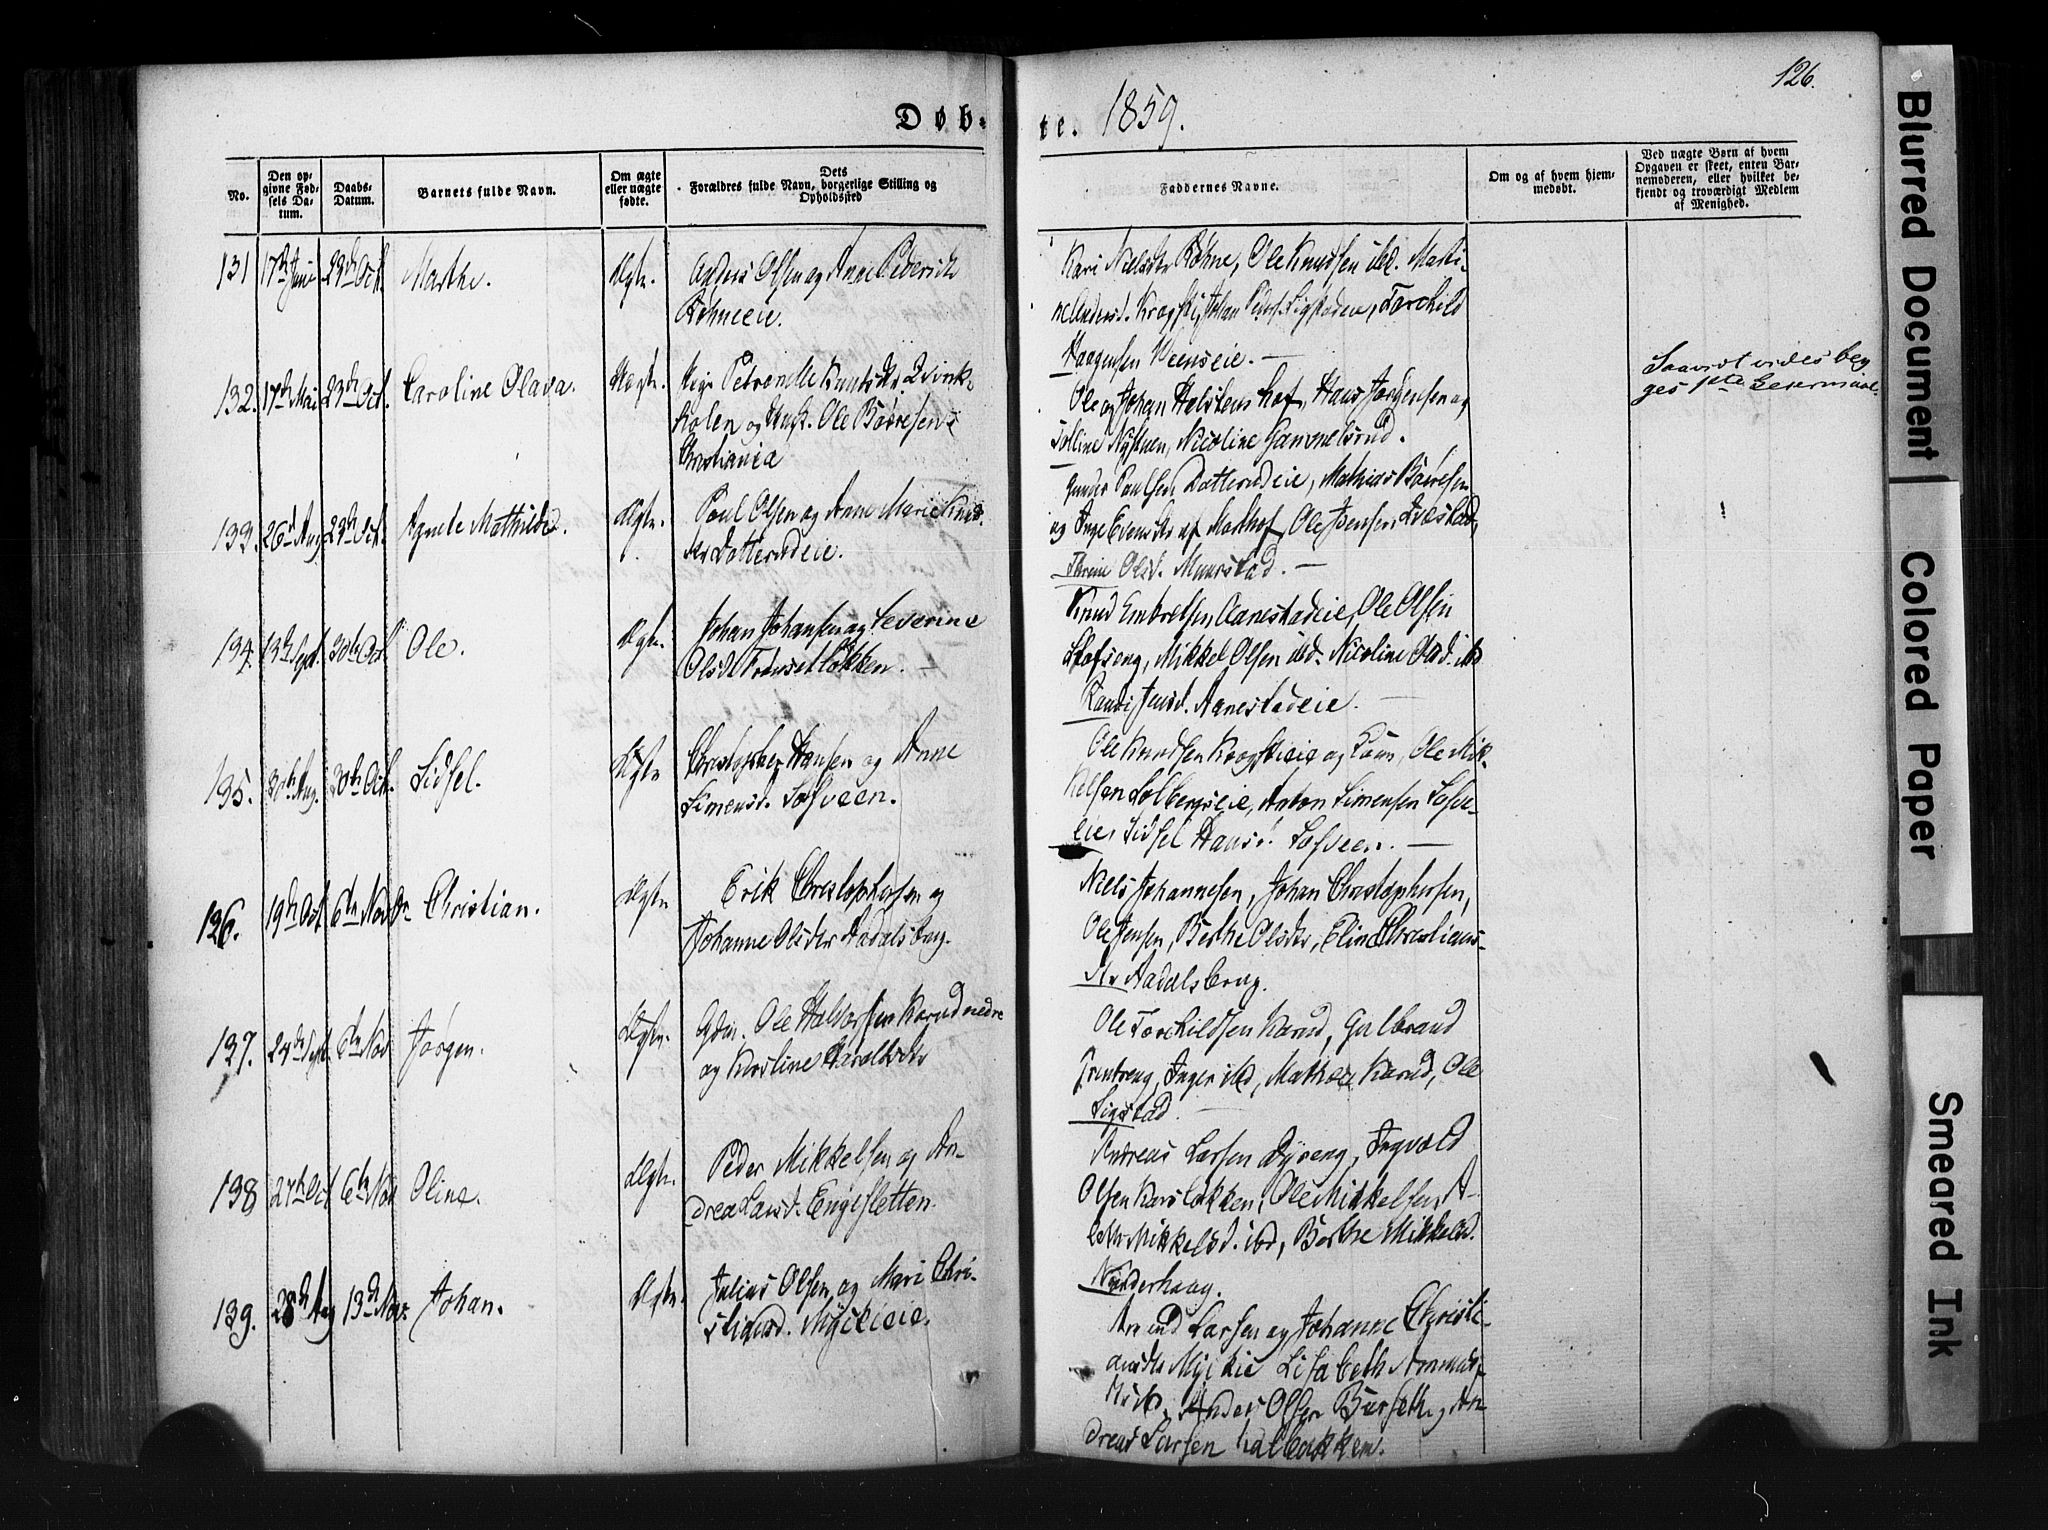 126.
Døb-
te. 1859.
No.
Den op-
givne Fød-
sels Da-
tum.
Daabs-
Datum.
Barnets fulde Navn.
Om ægte
eller uægte
fødte.
Dets
Forældres fulde Navn, borgerlige Stilling og
Opholdssted
Faddernes Navne.
Om og af hvem hjem-
medøbt.
Ved uægte Børn af hvem
Opgaven er skeet, enten Bar-
nemoderen, eller hvilket be-
kjendt og troværdigt Medlem
af Menighed.
131 17de Juni 23de Oct. Marthe. Ægte.
Anders Olsen og Anne
Røhneeie.
Kari Nielsdr Røhne, Ole Knudsen ibd. Marti-
ne Andersd. Kragsti, Johan Peders. Sigstadeie, Torchild
Haagensen Veenseie. —
132. 17de Mai 23de Oct. Caroline Olava. Uægte.
Pige Petronelle Knudsdr Qvink-
holen og Ungk. Ole Børresen
Christiania
Ole og Johan Holstenshof, Hans Jørgensen og
Nystuen, Nicoline Gammelsrud.
Saavidt vides beg
ges 1ste Leiermaal.
133. 26d Aug 23de Oct. Agnete Mathilde. Ægte.
Poul Olsen og Anne Marie Knud.
dr Dotterudeie.
Gunder Poulsen Dotterudeie, Mathias Børresen
og Inge Evensdr af Molhof, Ole Jensen
Olsd. Muurstad. —
134. 13de Sept. 30te Oct. Ole. Ægte.
Johan Johansen og Severine
Olsdr Tronsetløkken. —
Knud Embretsen Aanestadeie, Ole Olsen
Stafseng, Mikkel Olsen ibd. Nicoline Olsd. ibd
Randi Jensd. Aanestadeie. —
135. Aug. 30te Oct. Sidsel. Ægte
Christopher Hansen og Anne
Simensd. Løfveen.
Ole Knudsen Kragstieie og Kone, Ole Mik-
kelsen Solbergseie, Anton Simensen Løfve-
eie, Sidsel Hansd. Løfveen. —
136. 19de Oct 6te Nov Christian. Ægte
Erik Christophersen og
Johanne Olsdr Aadalsbrug.
Niels Johannesen, Johan Christophersen,
Ole Jensen, Berthe Olsdr, Eline Christians-
dr Aadalsbrug.
137. 24de Sept. 6te Nov Jørgen. Ægte.
Gdm. Ole Halvorsen Karud nedre
og Karoline Haraldsdr
Ole Torchildsen Karud, Gulbrand
Grøntreng, Inger ibd, Mathea Karud, Ole
Sigstad. —
138 27de Oct 6te Nov Oline. Ægte.
Peder Mikkelsen og An-
drea Larsd. Engesletten.
Andreas Larsen Dyreng, Ingvald
Olsen Karsløkken, Ole Mikkelsen, A-
lethe Mikkelsd. ibd, Berthe Mikkelsd.
Nordhaag.
139. 28de Aug 13de Nov. Johan. Ægte.
Julius Olsen og Mari Chri-
stiansd. Myskieie.
Amund Larsen og Johanne Christi-
ansdr Lisabeth Amunds
Anders Olsen Burseth, An-
dreas Larsen Holbakken.
Blurred Document
Colored Paper
Smeared Ink